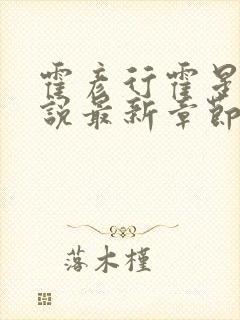 霍彦行霍星
說最新章節
落木槿